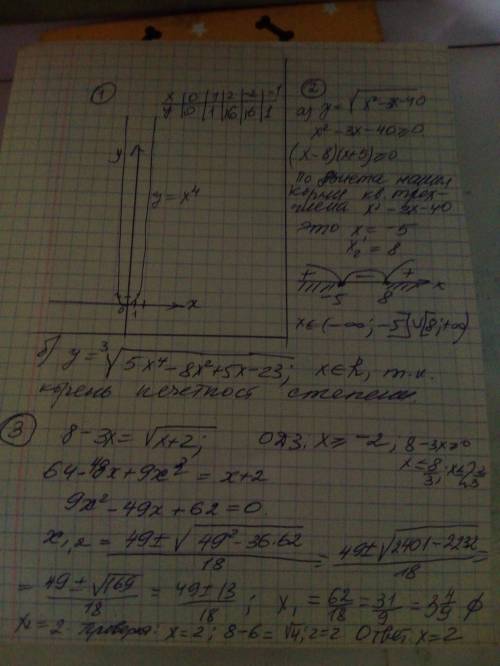 ①
x | 0 | 1 | 2 | -2 | -1
y | 0 | 1 | 16 | 16 | 1
y
y = x⁴
0 1 x
②
а) y = √(x² - 3x - 40)
x² - 3x - 40 ≥ 0
(x - 8)(x + 5) ≥ 0
По Виета нашли
корни кв. трех-
члена x² - 3x - 40
это x₁ = -5
x₂ = 8
+ - +
-5 8 x
x ∈ (-∞; -5] ∪ [8; +∞)
б) y = ³√(5x⁴ - 8x² + 5x - 23); x ∈ R, т.к.
корень нечетной степени.
③ 8 - 3x = √(x + 2); ОДЗ. x ≥ -2, 8 - 3x ≥ 0
64 - 48x + 9x² = x + 2
9x² - 49x + 62 = 0.
x₁,₂ = (49 ± √(49² - 36·62))/18 = (49 ± √(2401 - 2232))/18
= (49 ± √169)/18 = (49 ± 13)/18; x₁ = 62/18 = 31/9 = 3 4/9 ∅
x₂ = 2. Проверка: x = 2; 8 - 6 = √4; 2 = 2 Ответ: x = 2